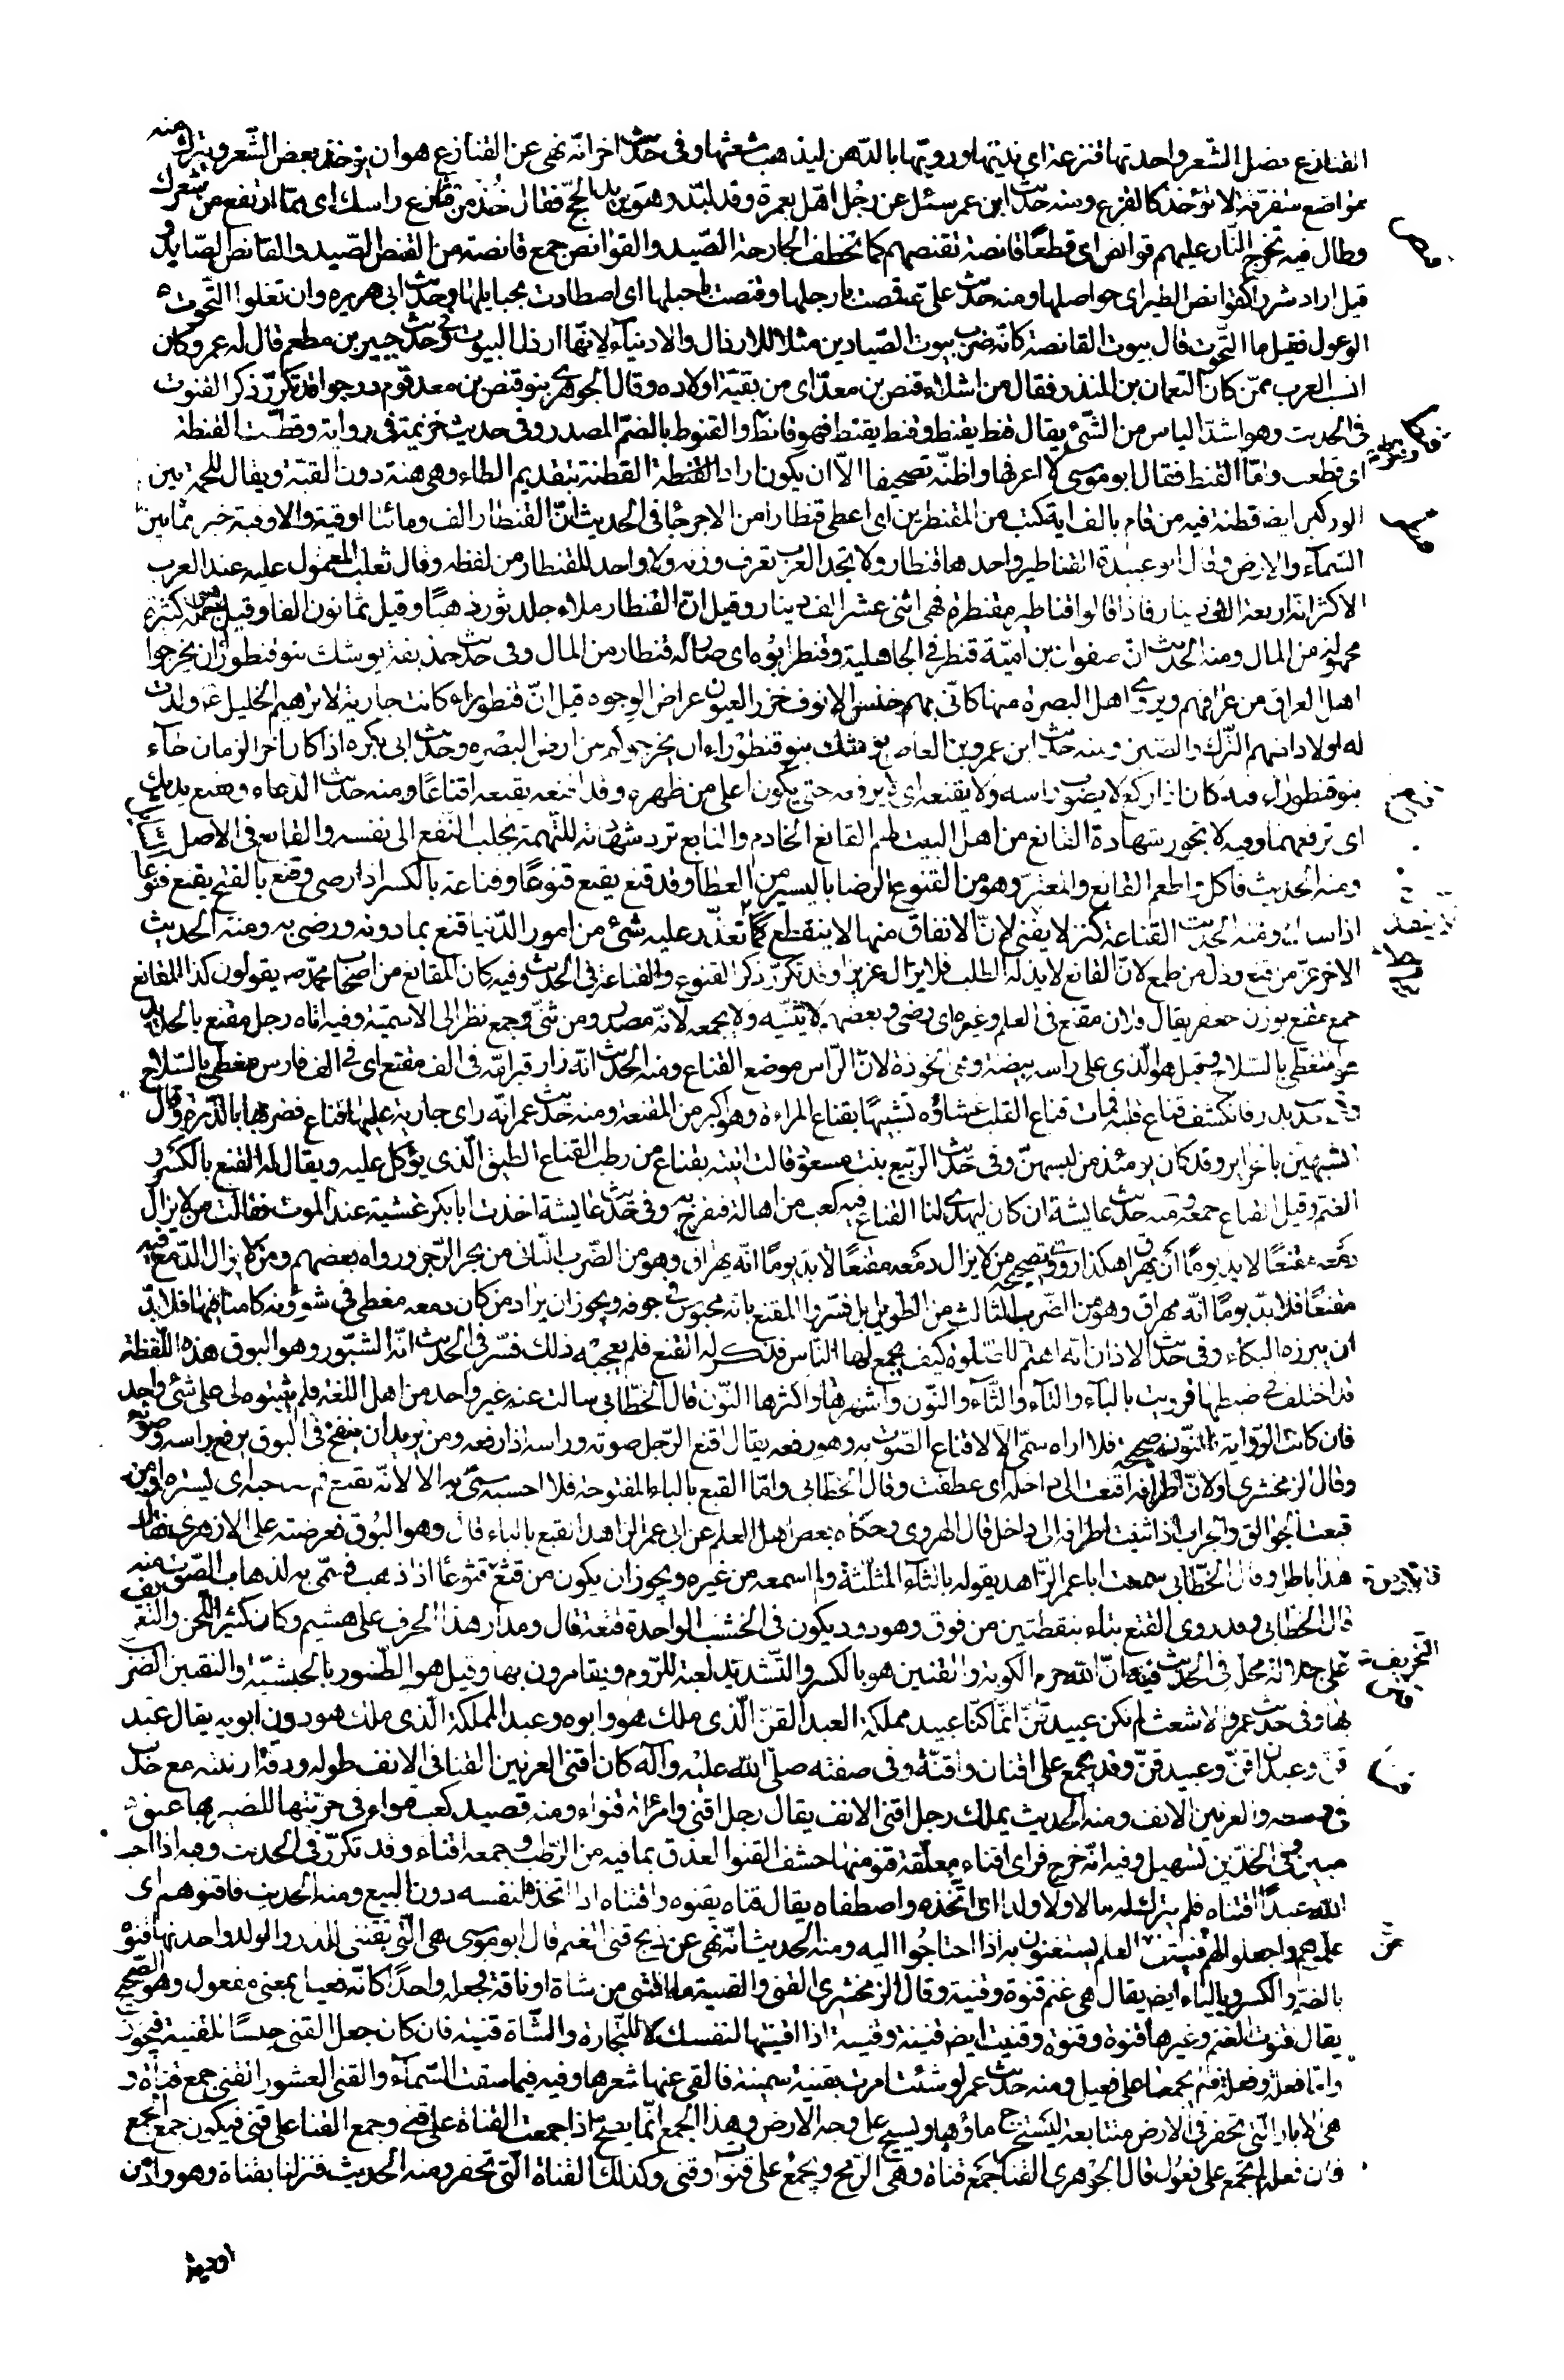 القنازع خصل الشعر واحدتها قنزعة اي نديتها ورويتها بالدّهن ليذهب شعثها وفى حدیث اخر انّه نهى عن القنازع هو ان يؤخذ بعض الشّعر ويترك منه
مواضع متفرقة لا تؤخذ كالقزع ومنه حدیث ابن عمر سئل عن رجُل اهّل بعمرة وقد لبّد وهو يريد الحجّ فقال خُذ من قنازع راسك اى ممّا ارتفع من شعرك
وطال فيه تخرج النّار عليهم قوانص اى قطعًا قانصة تقنصهم كما تخطف الجارحة الصّيد والقوانص جمع قانصة من القنص الصّيد والقانص الصّايد و
قيل اراد شررا كقوانص الطير اى حواصلها ومنه حدیث علیّ ع قمصت بارجلها وقنصت باحبلها اى اصطادت بحبايلها وحدیث ابى هريره وان تعلوا التّحوت
الوعول فقيل ما التّحوت قال بيوت القانصة كانّه ضرب بيوت الصّيادين مثلا للارذال والادنياء لانّها ارذل البيوت وفى حدیث جبير بن مطعم قال له عمر وكان
انسب العرب ممّن كان النّعمان بن المنذر فقال من اشلاء قنص بن معدّ اى من بقيّة اولاده وقال الجوهرى بنو قنص بن معد قوم درجوا قد تكرّر ذكر القنوت
فى الحديث وهو اشدّ الياس من الشّئ يقال قنط يقنط وقنط يقنط فهو قانط والقنوط بالضمّ المصدر وفى حديث خزيمة فى رواية وقطّت القنطة
اى قطعت وامّا القنط فقال ابو موسى لا اعرفها واظنّه تصحيفا الاّ ان يكون اراد القنطة القطنة بتقديم الطاء وهى هنة دون القبّة ويقال للحمة بين
الوركين ايضا قطنة فيه من قام بالف اية كتب من المقنطرين اى اعطى قنطارا من الاجر جٓا فى الحديث انّ القنطار الف ومائتا اوقية والاوقية خير ممّا بين
السّماء والارض وقال ابو عبيدة القناطير واحدها قنطار ولا تجد العرب تعرف وزنه ولا واحد للقنطار من لفظه وقال ثعلب المعمول عليه عند العرب
الاكثر انّه اربعة الاف دينار فاذا قالوا قناطير مقنطرة فهى اثنى عشر الف دينار وقيل انّ القنطار ملاء جلد ثور ذهبًا وقيل ثمانون الفا وقيل هى جملة كثيرة
مجهولة من المال ومنه الحديث انّ صفوان بن اميّة قنطر فى الجاهلية وقنطر ابوه اى صار له قنطار من المال وفى حدیث حذيفة يوشك بنو قنطورا ان يخرجوا
اهل العراق من عراقهم ويروى اهل البصرة منها كانّى بهم خنس الانوف خزر العيون عراض الوجوه قيل انّ قنطوراء كانت جارية لابراهيم الخليل ع ولدت
له اولادا منهم التّرك والصّين ومنه حدیث ابن عمرو بن العاص يوشك بنو قنطوراء ان يخرجوكم من ارض البصره وحدیث ابى بكره اذا كان اخر الزمان جاء
بنو قنطوراء فيه كان اذا ركع لا يصوّب راسه ولا يقنعه اى لا يرفعه حتى يكون اعلى من ظهره وقد اقنعه يقنعه اقناعًا ومنه حدیث الدّعاء وتقنع يديك
اى ترفعهما وفيه لا تجوز شهادة القانع من اهل البيت لهم القانع الخادم والتابع ترد شهادته للتّهمة بجلب النّفع الى نفسه والقانع فى الاصل السّائل
ومنه الحديث فاكل واطعم القانع والمعترّ وهو من القنوع الرضا باليسير من العطا وقد قنع يقنع قنوعًا وقناعة بالكسر اذا رضى وقنع بالفتح يقنع قنوعا
اذا سال ومنه الحديث القناعة كنز لا يفنى لانّ الانفاق منها لا ينقطع كلّما تعذّر عليه شئ من امور الدّنيا قنع بما دونه ورضى به ومنه الحديث
الاخر عزّ من قنع وذلّ من طمع لانّ القانع لا يذله الطلب فلا يزال عزيزا وقد تكرّر ذكر القنوع والقناعة فى الحديث وفيه كان المقانع من اصحاب محمّد ص يقولون كذا المقانع
جمع مقنع بوزن جعفر يقال فلان مقنع فى العلم وغيره اى رضى وبعضهم لا يثنّيه ولا يجمعه لانّه مصدر ومن ثنّى وجمع نظر الى الاسميّة وفيه اتاه رجل مقنع بالحديد
هو المتغطّى بالسّلاح وقيل هو الّذى على راسه بيضة وهى الخوذة لانّ الرّاس موضع القناع ومنه الحديث انّه زار قبر امّه فى الف مقنع اى فى الف فارس مغطى بالسّلاح
وفى حديث بدر فانكشف قناع قلبه فمات قناع القلب غشاؤه تشبيهًا بقناع المراءة وهو اكبر من المقنعة ومنه حدیث عمر انّه راى جارية عليها قناع فضربها بالدّرّة وقال
اتشبهين بالحراير وقد كان يومئذ من لبسهنّ وفى حدیث الربّيع بنت مسعود قالت اتيته بقناع من رطب القناع الطبق الّذى يؤكل عليه ويقال له القنع بالكسر و
الضم وقيل القناع جمعه ومنه حدیث عايشة ان كان ليهدى لنا القناع فيه كعب من اهالة فنفرح به وفى حدیث عايشة اخذت ابا بكر غشية عند الموت فقالت من لا يزال
دمعه مقنعًا لا بد يومًا ان يهراق هكذا روى وتصحيحه من لا يزال دمعه مقنعًا لا بدّ يومًا انّه يهراق وهو من الضّرب الثانى من بحر الرّجز ورواه بعضهم ومن لا يزال الدّمع فيه
مقنعًا فلا بدّ يومًا انّه مهراق وهو من الضّرب الثالث من الطّويل فسّروا المقنع بانّه محبوس فى جوفه ويجوز ان يراد من كان دمعه مغطى فى شؤونه كامنا فيها فلا بدّ
ان يبرزه البكاء وفى حدیث الاذان انّه اهتم للصّلوة كيف يجمع لها النّاس فذكر له القنع فلم يعجبه ذلك فسّر فى الحديث انّه الشبّور وهو البوق هذه اللّفظة
قد اختلف فى ضبطها فرويت بالباء والتاء والثّاء والنّون واشهرها واكثرها النّون قال الخطّابى سالت عنه غير واحد من اهل اللغة فلم يثبتوه لى على شئ واحد
فان كانت الرّواية بالنّون صحيحة فلا اراه سمّى الا لاقناع الصّوت به وهو رفعه يقال اقنع الرّجل صوته وراسه اذا رفعه ومن يريد ان ينفخ فى البوق يرفع راسه وصوته
وقال الزمخشرى اولانّ اطرافه اقنعت الى داخله اى عطفت وقال الخطّابى وامّا القبع بالباء المفتوحة فلا احسبه سمّى به الا لانّه يقبع فم صاحبه اى يستره او من
قبعت الجوالق والجراب اذا ثنيت اطرافه الى داخل قال الهروى وحكاه بعض اهل العلم عن ابى عمر الزاهد القبع بالباء قال وهو البُوق فعرضته على الازهرى فقال
هذا باطل وقال الخطّابى سمعت ابا عمر الزّاهد يقوله بالثاء المثلّثة ولم اسمعه من غيره ويجوز ان يكون من قثع قثوعًا اذا ذهب فسمّى به لذهاب الصّوت منه
قال الخطابى وقد روى القتع بتاء بنقطتين من فوق وهو دود يكون فى الخشب الواحدة قتعة قال ومدار هذا الحرف على هشيم وكان كثير اللّحن والتّحريف
على جلالة محلّه فى الحديث فيه انّ الله حرم الكوبة والقنين هو بالكسر والتّشديد لعبة للرّوم ويقامرون بها وقيل هو الطّنبور بالحبشيّة والتقنين الضرب
بها وفى حدیث عمر والاشعث لم نكن عبيد قنّ انّما كنّا عبيد مملكة العبد القنّ الّذى ملك هو وابوه وعبد المملكة الّذى ملك هو دون ابويه يقال عبد
قنّ وعبدان قنّ وعبيد قنّ وقد يجمع على اقنان واقنّة وفى صفته صلّى الله عليه وآله كان اقنى العرنين القنا فى الانف طوله ودقّة ارنبته مع حدب
فى وسطه والعرنين الانف ومنه الحديث يملك رجل اقنى الانف يقال رجل اقنى وامرأة قنواء ومنه قصيد كعب قنواء فى حرّتيها للبصير بها عتق
مبين وفى الخدّين تسهيل وفيه انّه خرج فراى اقناء معلّقة قنو منها حشف القنو العذق بما فيه من الرّطب وجمعه اقناء وقد تكرّر فى الحديث وفيه اذا احب
الله عبدًا اقتناه فلم يترك له مالا ولا ولدا اى اتّخذه واصطفاه يقال قناه يقنوه واقتناه اذا اتخذه لنفسه دون البيع ومنه الحديث فاقنوهم اى
علّموهم واجعلوا لهم قنية من العلم يستغنون به اذا احتاجُوا اليه ومنه الحديث انّه نهى عن ذبح قنى الغنم قال ابو موسى هى الّتى تقتنى للدّر والولد واحدتها قنوة
بالضم والكسر وبالياء ايض يقال هى غنم قنوة وقنية وقال الزمخشرى القنى والقنية ما اقتنى من شاة او ناقة فجعله واحدًا كانّه فعيل بمعنى مفعول وهو الصّحيح
يقال قنوت الغنم وغيرها قنوة وقنوة وقنيت ايض قنية وقنية اذا اقتنيتها لنفسك لا للتّجارة والشّاة قنيّة فان كان جعل القنى جنسًا للقنية فيجوز
وامّا فعلة وفعلة فلم يجمعا على فعيل ومنه حدیث عمر لو شئت امرت بقنية سمينة فالقى عنها شعرها وفيه فيما سقت السّماء والقنى العشور القنى جمع قناة و
هى الابار الّتى تحفر فى الارض متتابعة ليستخرج ماؤها ويسيح على وجه الارض وهذا الجمع انّما يصحّ اذا جمعت القناة على قنى وجمع القنا على قنى فيكون جمع الجمع
فان فعله لم تجمع على فعول قال الجوهرى القنا جمع قناة وهى الرّمح ويجمع على قنوات وقنى وكذلك القناة الّتى تحفر ومنه الحديث فنزلنا بقناة وهو واد من
اودية